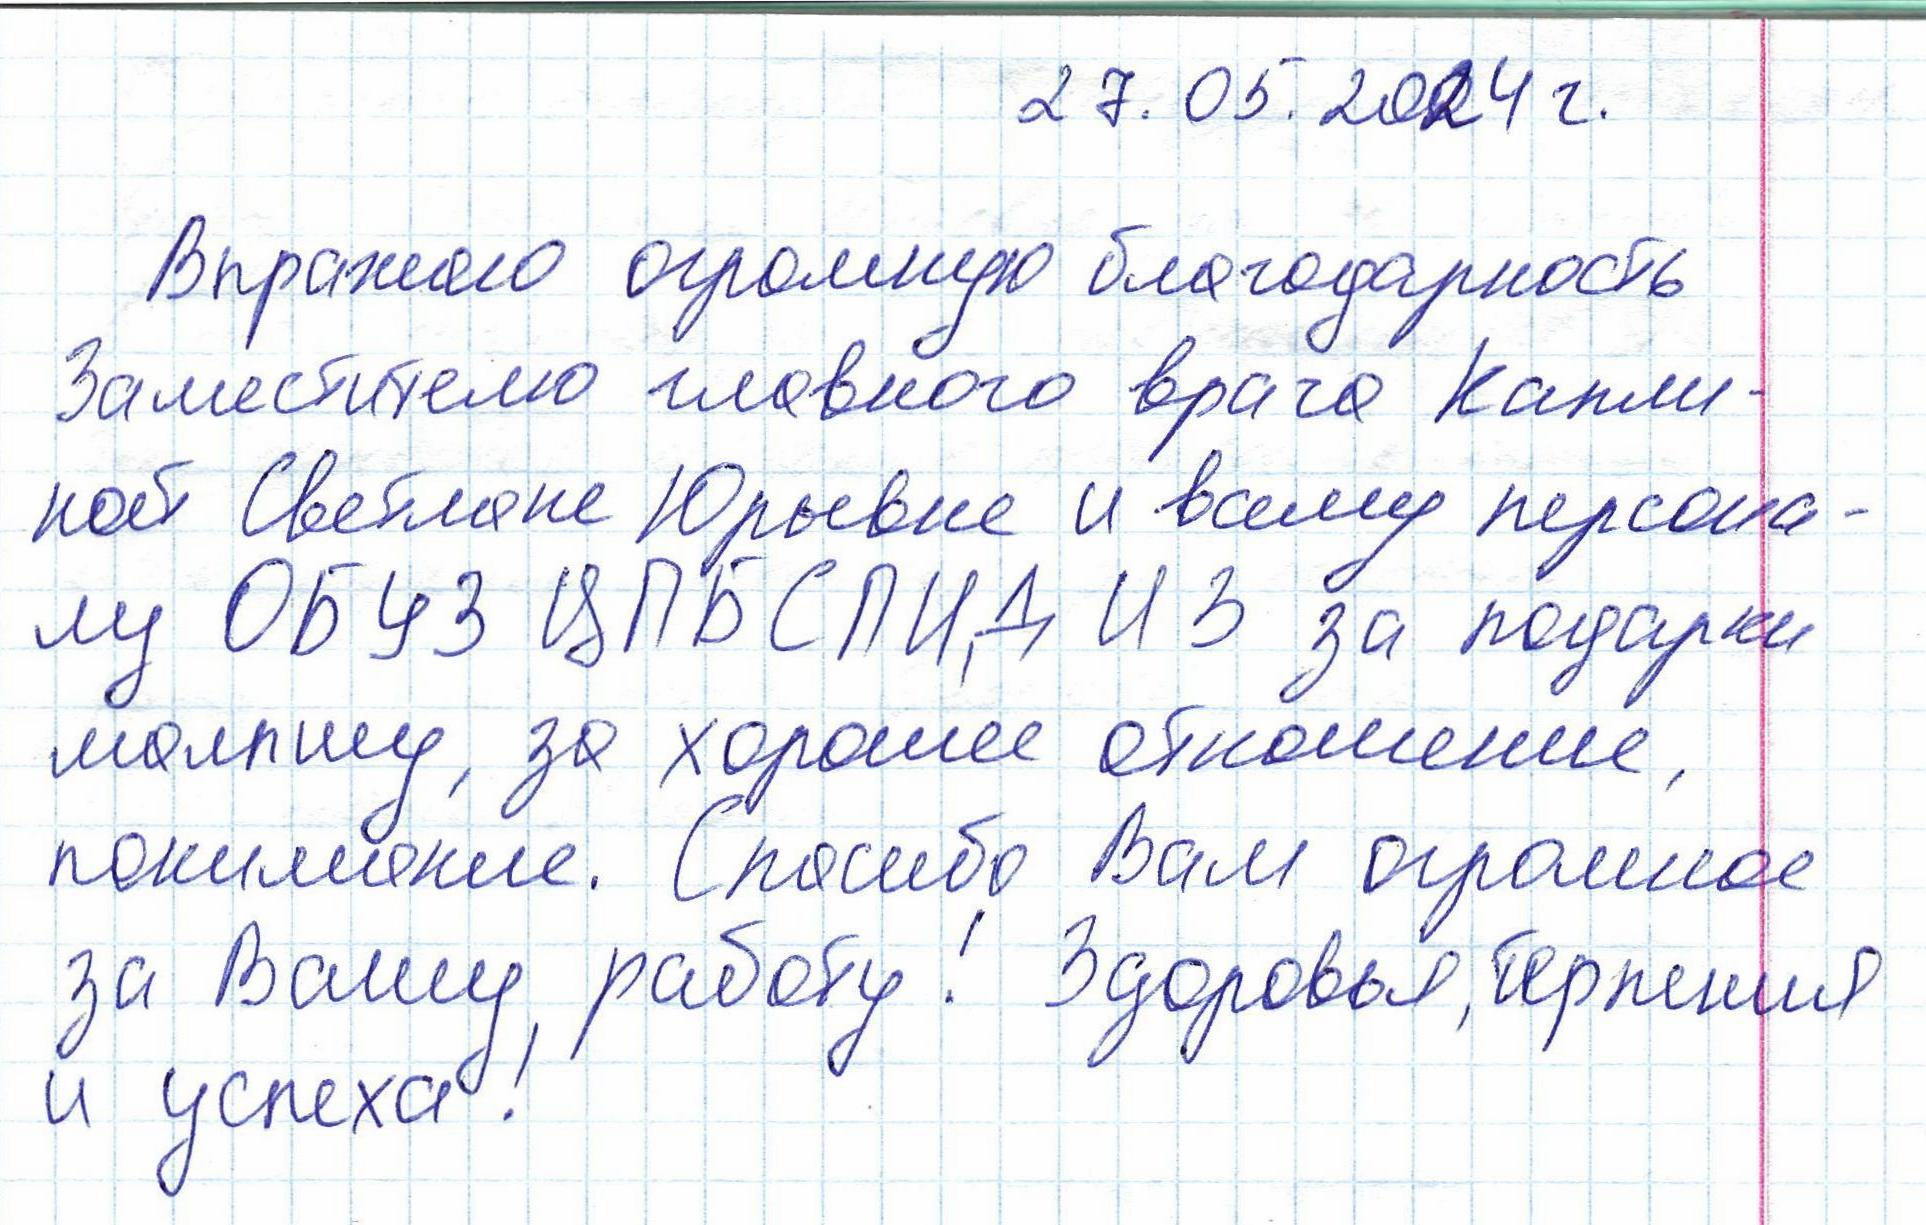 27.05.2024 г.
Выражаю огромную благодарность
Заместителю главного врача Капли-
ной Светлане Юрьевне и всему персона-
лу ОБУЗ ЦПБСПИД ИЗ за подарки
малышу, за хорошее отношение,
понимание. Спасибо Вам огромное
за Вашу работу! Здоровья, терпения
и успеха!